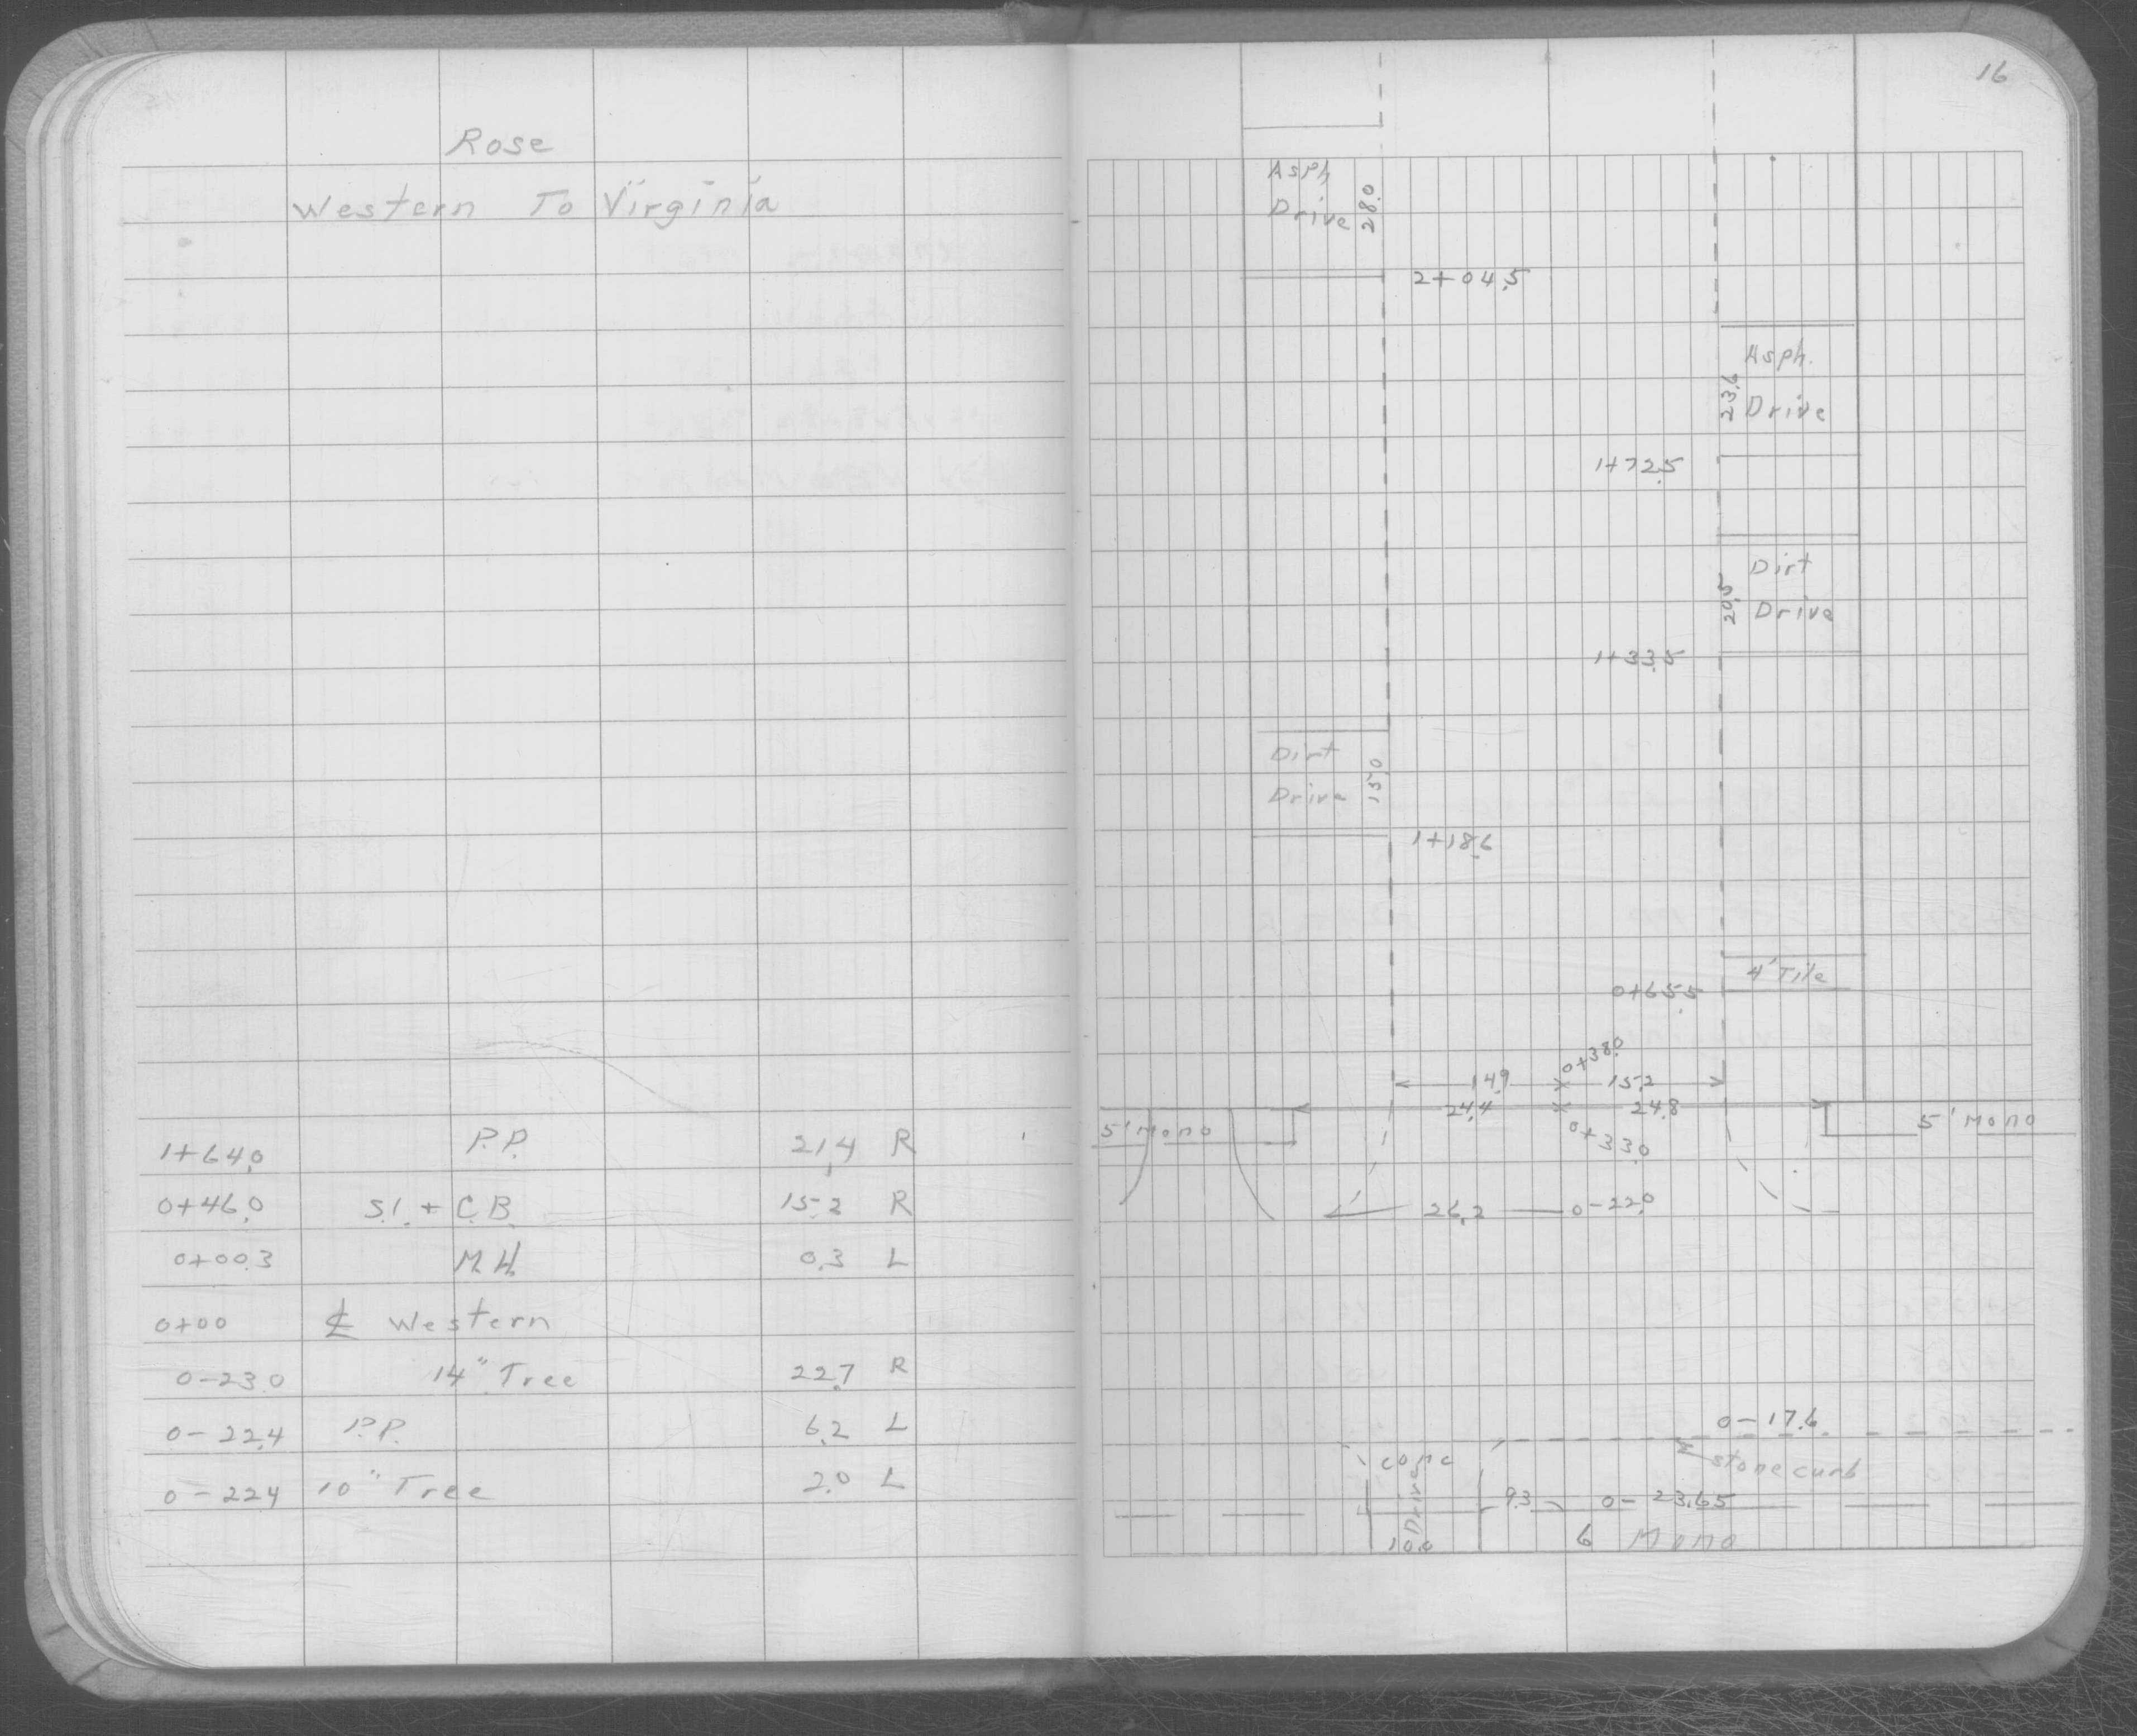 Rose
Western To Virginia
1+64.0 P.P. 21.4 R
0+46.0 S.I. + C.B. 15.2 R
0+00.3 M.H. 0.3 L
0+00 ℄ Western
0-23.0 14" Tree 22.7 R
0-22.4 P.P. 6.2 L
0-22.4 10" Tree 2.0 L
16
Asph
Drive
28.0
2+04.5
Asph.
Drive
23.6
1+72.5
Dirt
Drive
20.5
1+33.5
Dirt
Drive
15.0
1+18.6
4' Tile
0+65.5
0+38.0
14.9 15.2
24.4 24.8
5' Mono
5' Mono
0+33.0
26.2 0-22.0
0-17.6
conc
Drive
stone curb
9.3 0-23.65
10.0
6 Mono